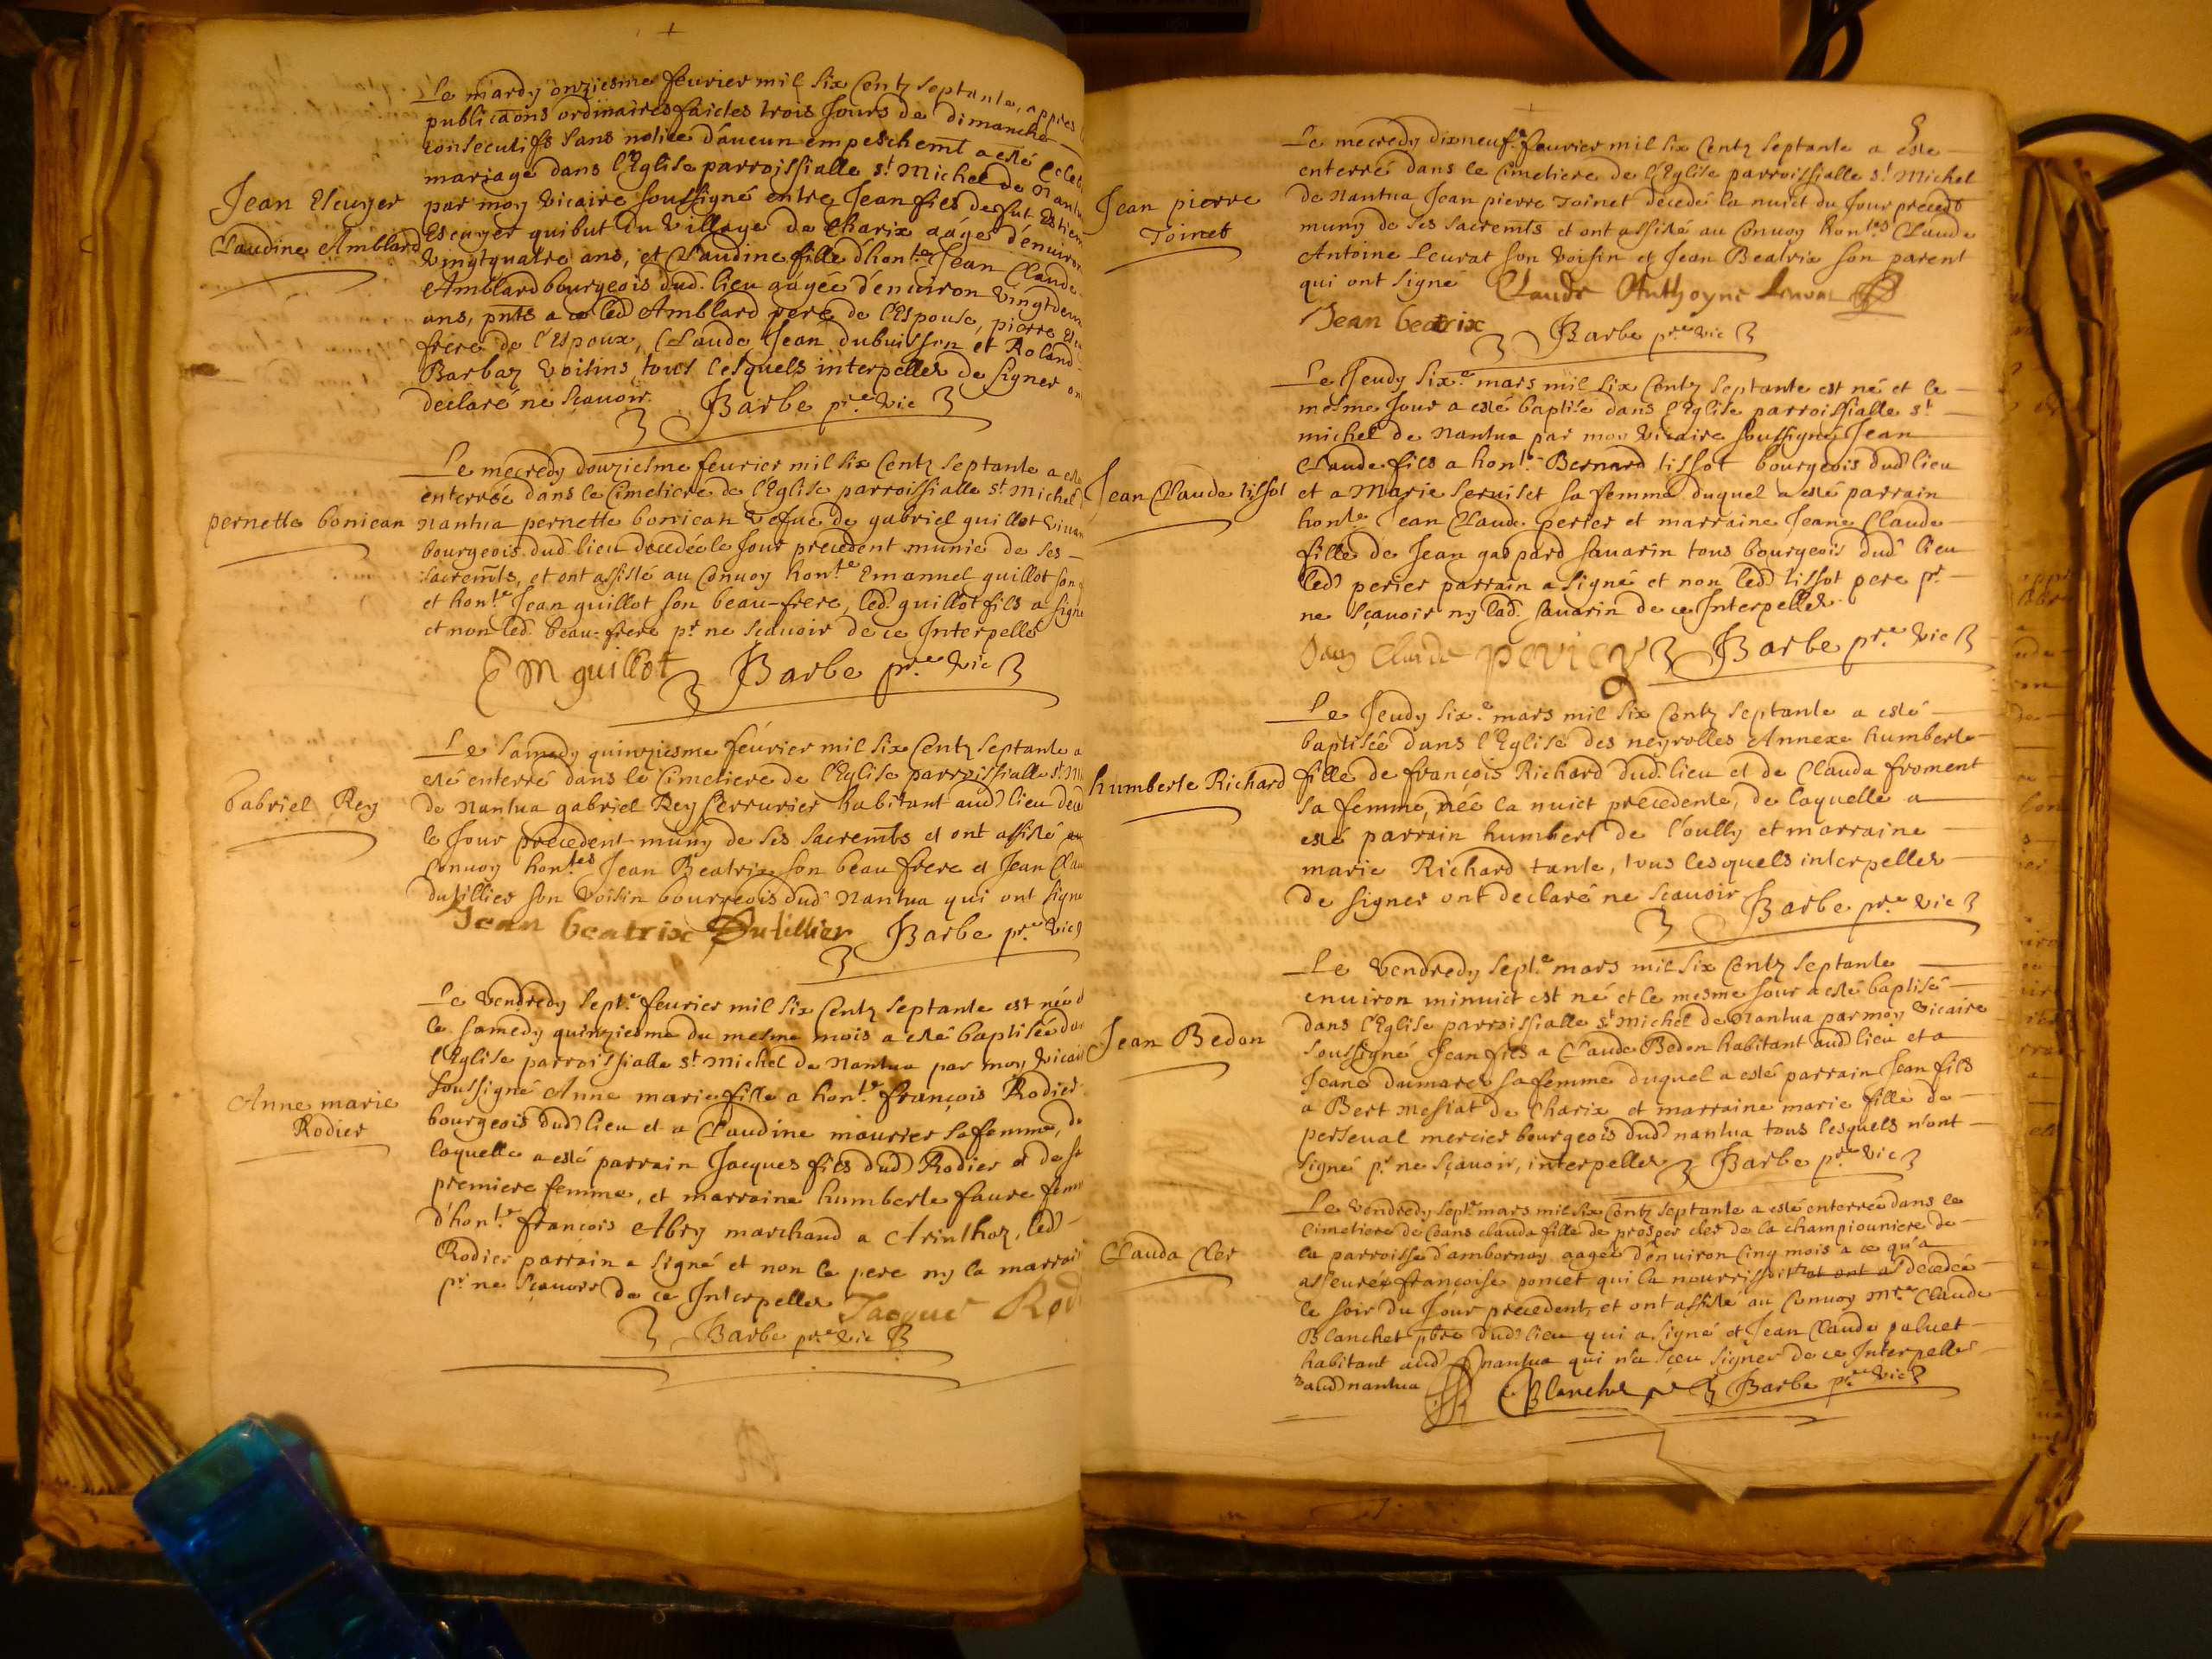 Le mardy onziesme feurier mil six Centz septante, appres
publicaons ordinaires faictes trois Jours de dimanche
consecutifs sans notice d'aucun empeschemt a esté Celeb
mariage dans l'Eglise parroissialle st Michel de Nantu
Jean Escuyer
par moy vicaire soussigné entre Jean fils de fut Estien
Claudine Amblard
Escuyer quibut du village de Charix aagé d'enuiron
vingtquatre ans, et Claudine fille d'honte Jean Claude
Amblard bourgeois dud. lieu aagée d'enuiron vingtdeux
ans, pnts a ce led Amblard pere de l'Espouse, pierre Esc
frere de l'Espoux, Claude Jean dubuisson et Roland
Barbaz voisins, tous lesquels interpelles de signer on
declaré ne sçauoir. Barbe pre vic
Le mecredy douziesme feurier mil six Centz septante a esté
enterrée dans le Cimetiere de l'Eglise parroissialle st Michel d
pernette bonican
Nantua pernette bonican vefue de gabriel guillot viuan
bourgeois dud lieu decedée le Jour precedent munie de ses
sacremts, et ont assisté au Conuoy honte Emanuel guillot son
et honte Jean guillot son beau-frere, led. guillot fils a signé
et non led. beau-frere pr ne sçauoir de ce Interpellé
E M guillot Barbe pre vic
Le samedy quinziesme féurier mil six Centz septante a
esté enterré dans le Cimetiere de l'Eglise parroissialle st M
Gabriel Rey
de Nantua gabriel Rey serrurier habitant aud lieu dece
le Jour precedent muny de ses sacremts et ont assisté au
Conuoy hontes Jean Beatrix son beau frere et Jean Clau
dutillier son voisin bourgeois dud Nantua qui ont signe
Jean beatrix Dutillier Barbe pre vic
Le vendredy septe feurier mil six Centz septante est née
le samedy quinziesme du mesme mois a esté baptisée da
l'Eglise parroissialle st Michel de Nantua par moy vicai
Anne marie
Rodier
soussigné Anne marie fille a honte françois Rodier
bourgeois dud lieu et a Claudine mourier sa femme, de
laquelle a esté parrain Jacques fils dud Rodier et de sa
premiere femme, et marraine humberte faure fem
d'honte françois Abry marchand a Arinthoz, led
Rodier parrain a signé et non le pere ny la marrai
pr ne sçauoir de ce Interpelles Jacque Rod
Barbe pre vic
5
Le mecredy dixneufe feurier mil six Centz septante a esté
enterré dans le Cimetiere de l'Eglise parroissialle st Michel
Jean pierre
Toinet
de Nantua Jean pierre Toinet decedé la nuict du Jour precedt
muny de ses sacremts et ont assisté au Conuoy hontes Claude
Antoine Leurat son voisin et Jean Beatrix son parent
qui ont signé Claude Anthoyne
Jean beatrix Barbe pre vic
Le Jeudy sixe mars mil six Centz septante est né et le
mesme Jour a esté baptisé dans l'Eglise parroissialle st
michel de Nantua par moy vicaire soussigné Jean
Claude fils a honte Bernard tissot bourgeois dud lieu
Jean Claude tissot
et a Marie seruiset sa femme duquel a esté parrain
honte Jean Claude perier et marraine Jeane Claude
fille de Jean gaspard sauarin tous bourgeois dud lieu
led perier parrain a signé et non led tissot pere pr
ne sçauoir ny lad. sauarin de ce Interpelles
Jean Claude perier Barbe pre vic
Le Jeudy sixe mars mil six Centz septante a esté
baptisée dans l'Eglise des neyrolles Annexe humberte
humberte Richard
fille de françois Richard dud. lieu et de Clauda froment
sa femme, née la nuict precedente, de laquelle a
esté parrain humbert de l'oully et marraine
marie Richard tante, tous lesquels interpelles
de signer ont declaré ne sçauoir Barbe pre vic
Le vendredy septe mars mil six Centz septante
enuiron minuict est né et le mesme Jour a esté baptisé
dans l'Eglise parroissialle st Michel de Nantua par moy vicaire
Jean Bedon
soussigné Jean fils a Claude Bedon habitant aud lieu et a
Jeane dumares sa femme duquel a esté parrain Jean fils
a Bert mesiat de Charix et marraine marie fille de
perseual mercier bourgeois dud nantua tous lesquels n'ont
signé pr ne sçauoir, interpelles Barbe pre vic
Le vendredy septe mars mil six Centz septante a esté enterrée dans le
Cimetiere de Ceans clauda fille de prosper cler de la championiere de
Clauda Cler
la parroisse d'ambornay aagée d'enuiron Cinq mois a ce qu'a
asseuré françoise poncet qui la nourrissoit et ont as decedée
le soir du Jour precedent, et ont assisté au Conuoy mre Claude
Blanchet pbre dud lieu qui a signé et Jean Claude paluet
habitant aud nantua qui n'a sceu signer de ce Interpellé
aud nantua Blanchet Barbe pre vic